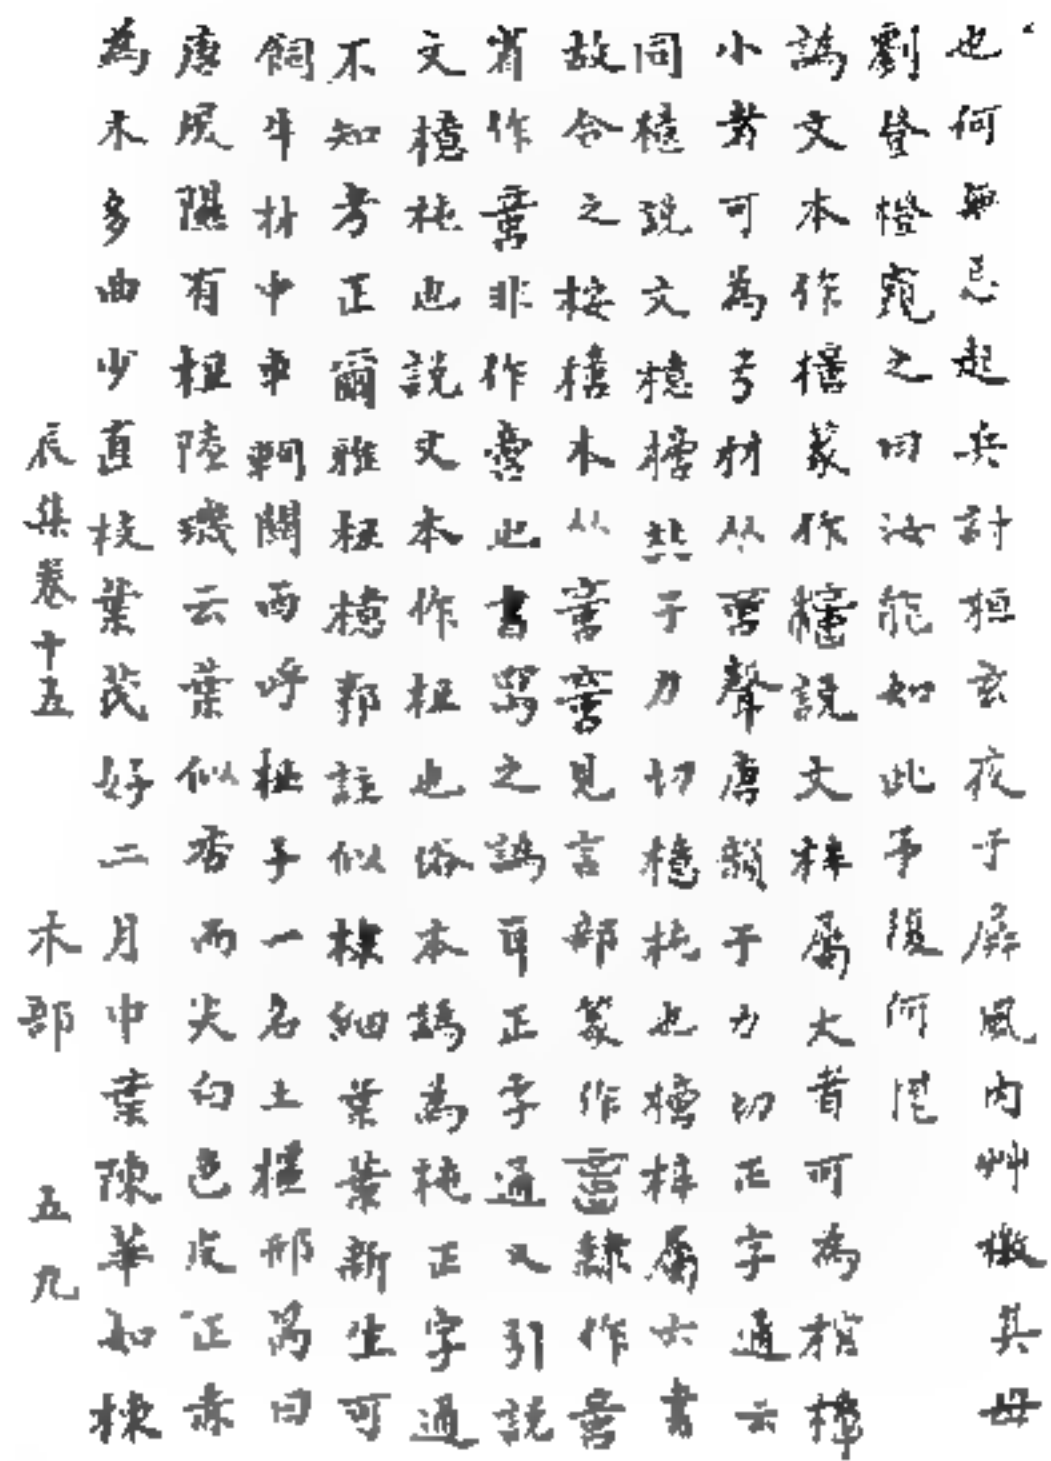 也何無忌起兵討桓玄夜于屏風內艸檄其母
劉登橙窺之曰汝能如此予復何
譌文本作檍篆作檍說文梓屬大者可為棺椁
小者可為弓材从聲唐韻于力切正字通云
同檍說文檍檍于力切檍杶也檍梓屬六書
故合之按檍木从啻啻見言部篆作隸作啻
省作非作意也書之譌耳正字通又引說
文檍杶也說文本作杻也俗本譌為杶正字通
不知考正爾雅杻檍郭註似棣細葉葉新生可
飼牛材中車輞關西呼杻子一名土橿邢昺曰
唐風隰有杻陸璣云葉似杏而尖白色皮正赤
為木多曲少直枝葉茂好二月中葉疎華如楝
辰集卷十五 木部 五九